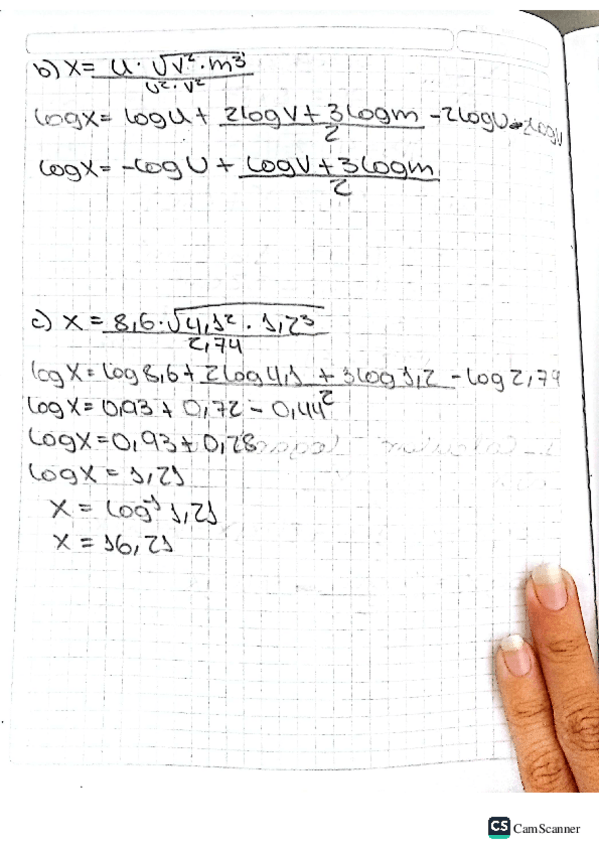 b) x = u · √v² · m³
u² · v²
log x = log u + 2 log v + 3 log m - 2 log u - 2 log v
2
log x = - log u + log v + 3 log m
2
c) x = 8,6 · √4,1² · 1,2³
2,74
log x = log 8,6 + 2 log 4,1 + 3 log 1,2 - log 2,74
2
log x = 0,93 + 0,72 - 0,44
log x = 0,93 + 0,28
log x = 1,21
x = log⁻¹ 1,21
x = 16,21
CS CamScanner